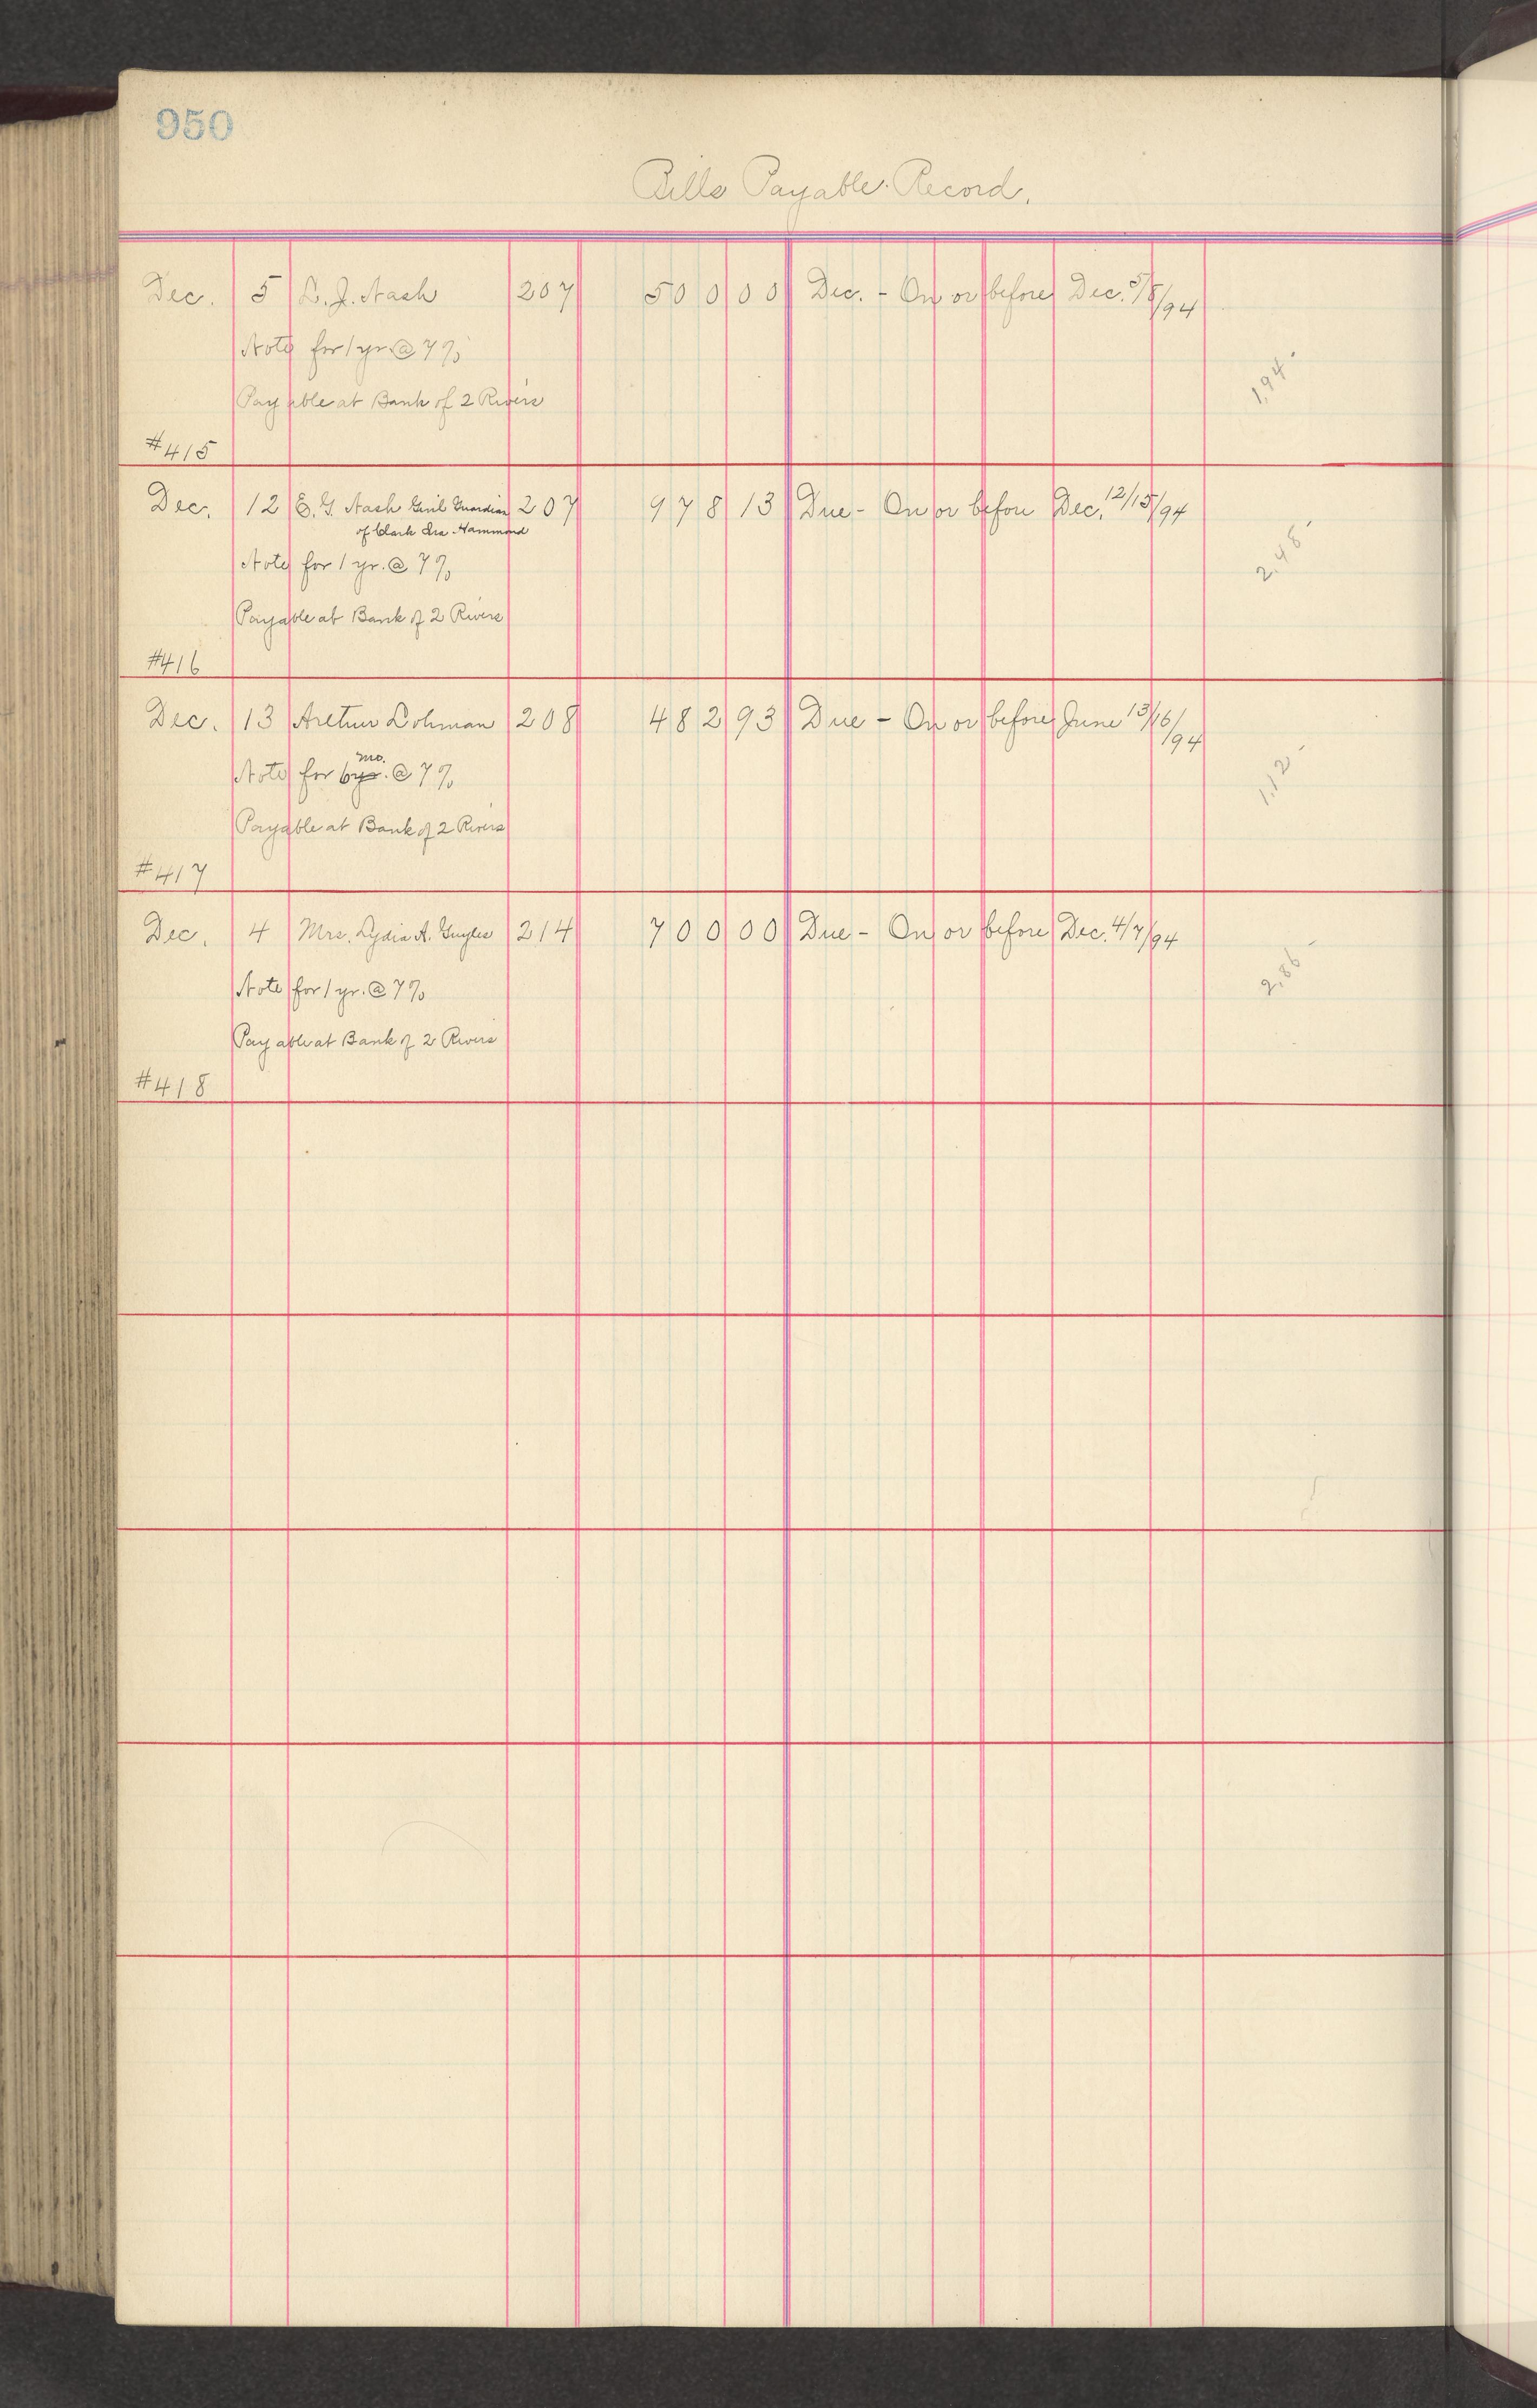 950
Bills Payable Record.
Dec. 5 L. J. Nash 207 500 00 Dec. - On or before Dec. 5/8/94
Note for 1 yr @ 7%
1.94 -
Payable at Bank of 2 Rivers
#415
Dec. 12 E. G. Nash Genl Guardian 207 978 13 Due - On or before Dec. 12/15/94
of Clark Ira Hammond
2.48 -
Note for 1 yr. @ 7%
Payable at Bank of 2 Rivers
#416
Dec. 13 Arthur Lohman 208 482 93 Due - On or before June 13/16/94
mo.
Note for 6 yr. @ 7%
1.12 -
Payable at Bank of 2 Rivers
#417
Dec. 4 Mrs. Lydia A. Guyles 214 700 00 Due - On or before Dec. 4/7/94
2.86 -
Note for 1 yr. @ 7%
Payable at Bank of 2 Rivers
#418